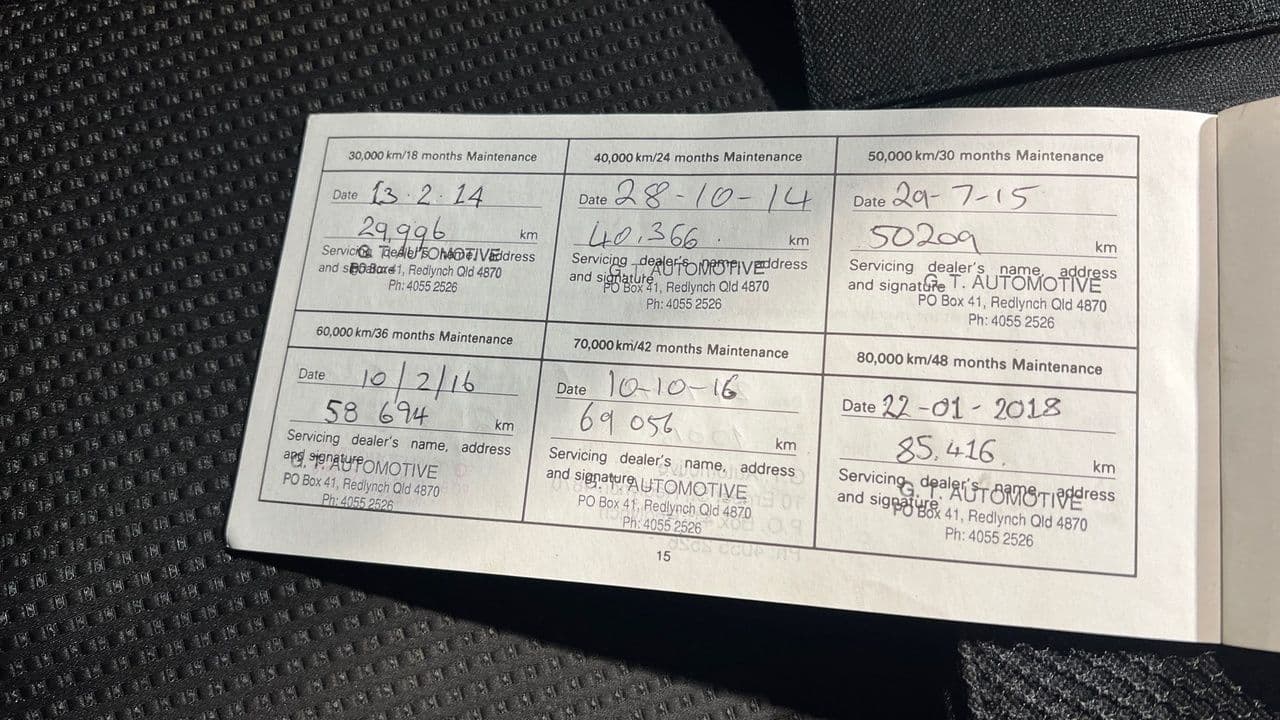 30,000 km/18 months Maintenance
Date 13.2.14
29,996 km
Servicing dealer's name, address
and signature
G. T. AUTOMOTIVE
PO Box 41, Redlynch Qld 4870
Ph: 4055 2526
40,000 km/24 months Maintenance
Date 28-10-14
40,366. km
Servicing dealer's name, address
and signature
AUTOMOTIVE
PO Box 41, Redlynch Qld 4870
Ph: 4055 2526
50,000 km/30 months Maintenance
Date 29-7-15
50209 km
Servicing dealer's name, address
and signature
G. T. AUTOMOTIVE
PO Box 41, Redlynch Qld 4870
Ph: 4055 2526
60,000 km/36 months Maintenance
Date 10/2/16
58 694 km
Servicing dealer's name, address
and signature
G. T. AUTOMOTIVE
PO Box 41, Redlynch Qld 4870
Ph: 4055 2526
70,000 km/42 months Maintenance
Date 10-10-16
69 056 km
Servicing dealer's name, address
and signature
G. T. AUTOMOTIVE
PO Box 41, Redlynch Qld 4870
Ph: 4055 2526
80,000 km/48 months Maintenance
Date 22-01-2018
85,416. km
Servicing dealer's name, address
and signature
G. T. AUTOMOTIVE
PO Box 41, Redlynch Qld 4870
Ph: 4055 2526
15